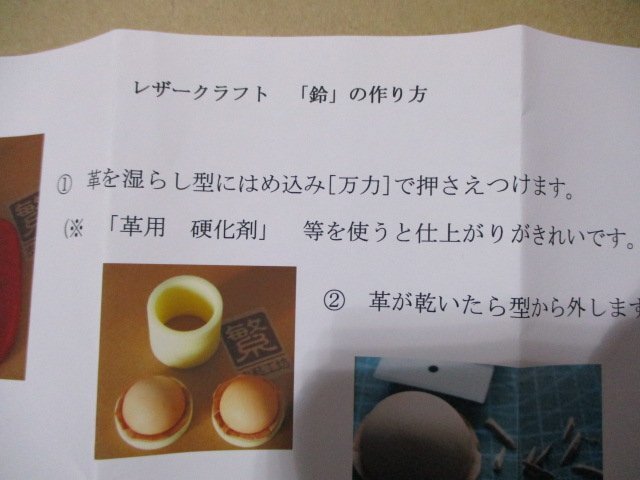 レザークラフト　「鈴」の作り方
① 革を湿らし型にはめ込み[万力]で押さえつけます。
(※　「革用　硬化剤」　等を使うと仕上がりがきれいです。
②　革が乾いたら型から外します
繁